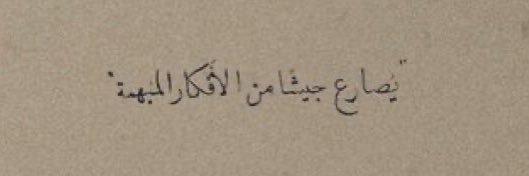 "يُصارع جيشًا من الأفكار المبهمة"